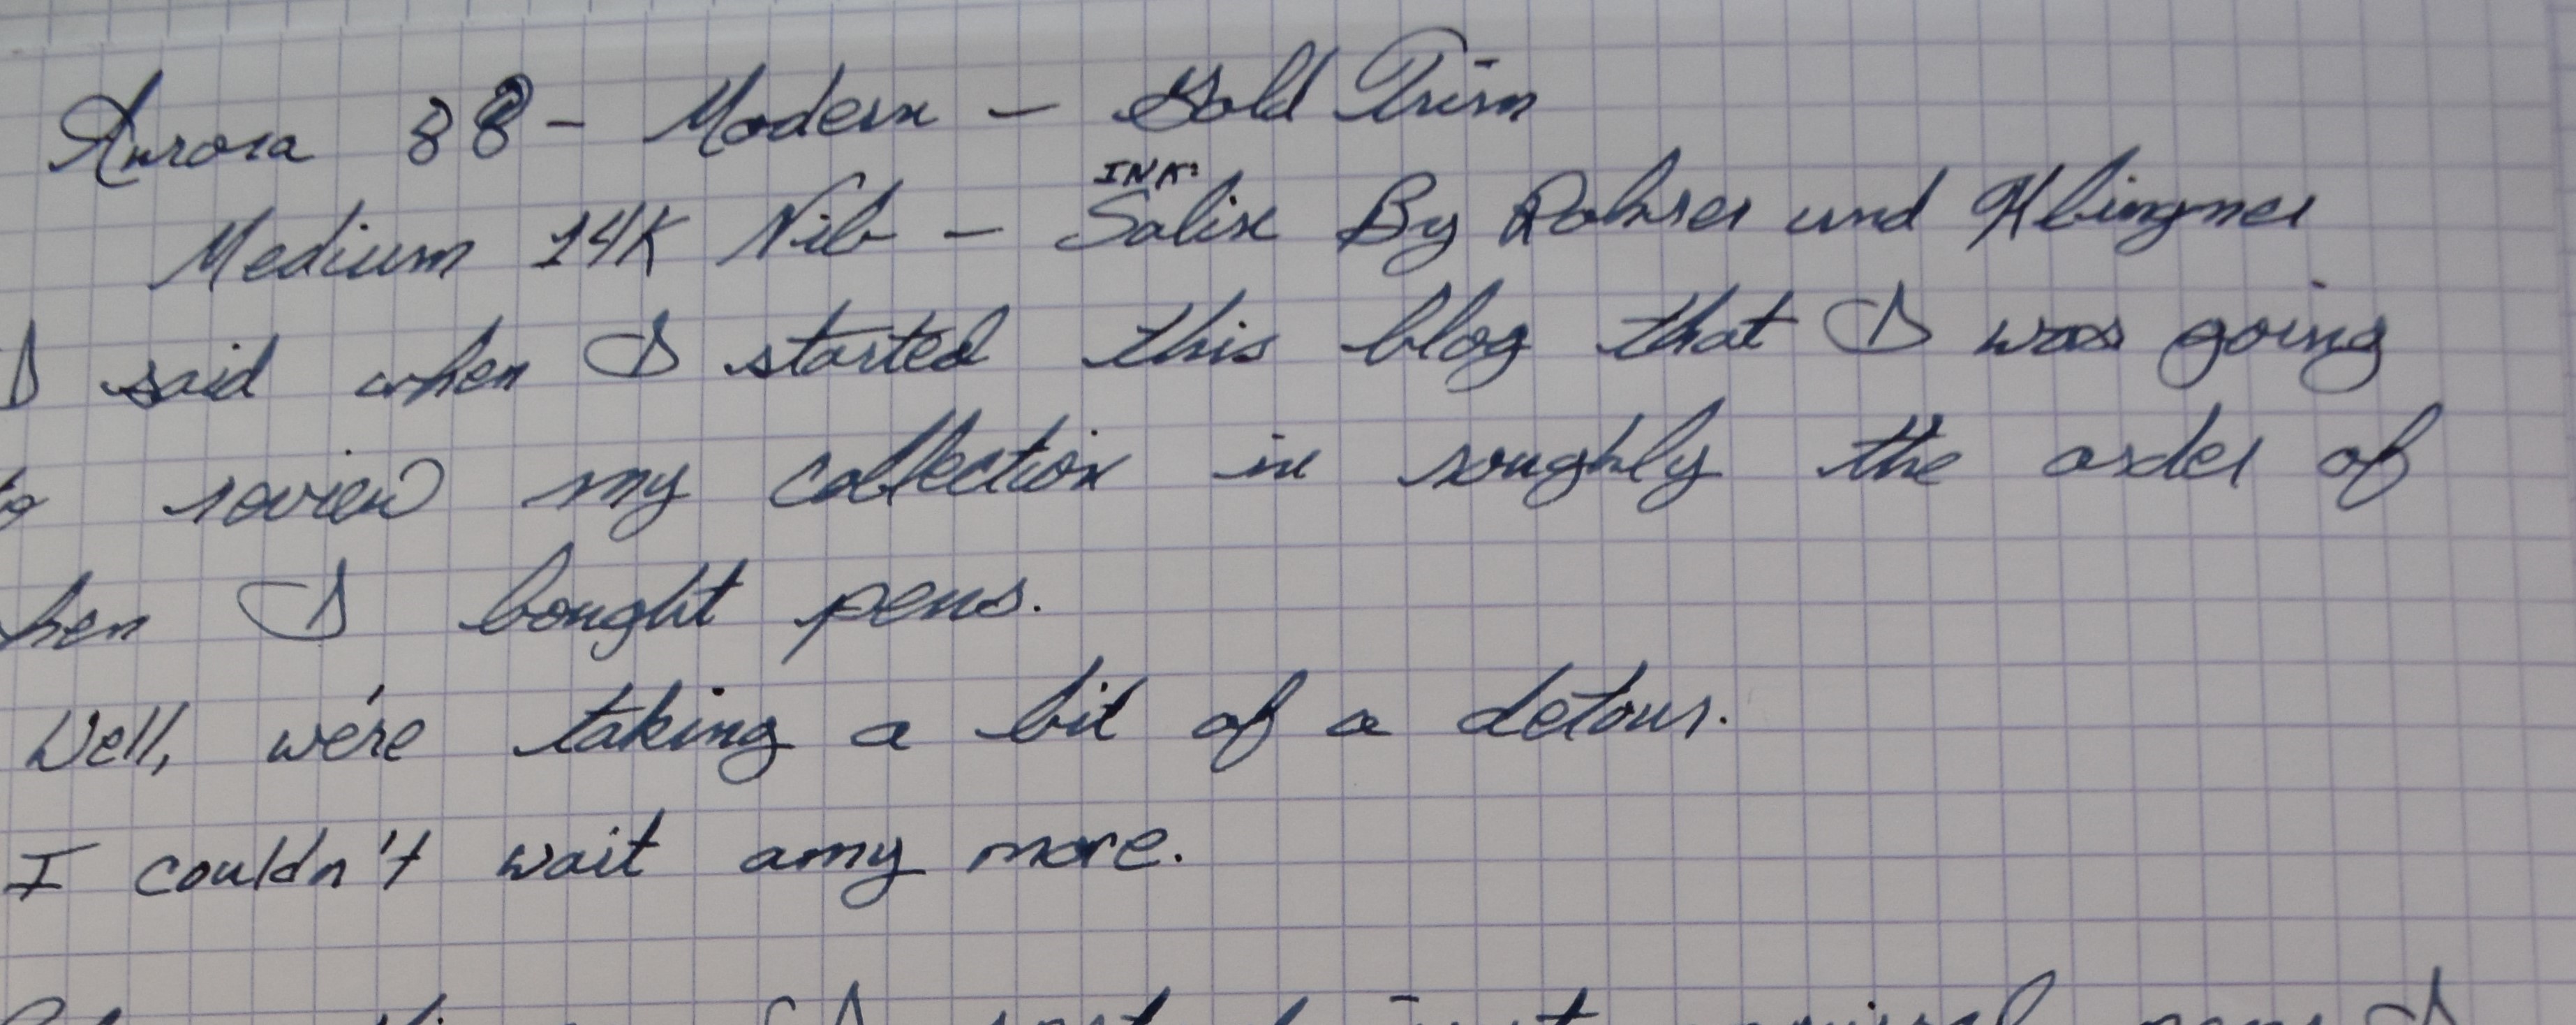 Aurora 88 - Modern - Gold Trim
INK:
Medium 14K Nib - Salix By Rohrer und Klingner
I said when I started this blog that I was going
to review my collection in roughly the order of
hen I bought pens.
Well, we're taking a bit of a detour.
I couldn't wait any more.